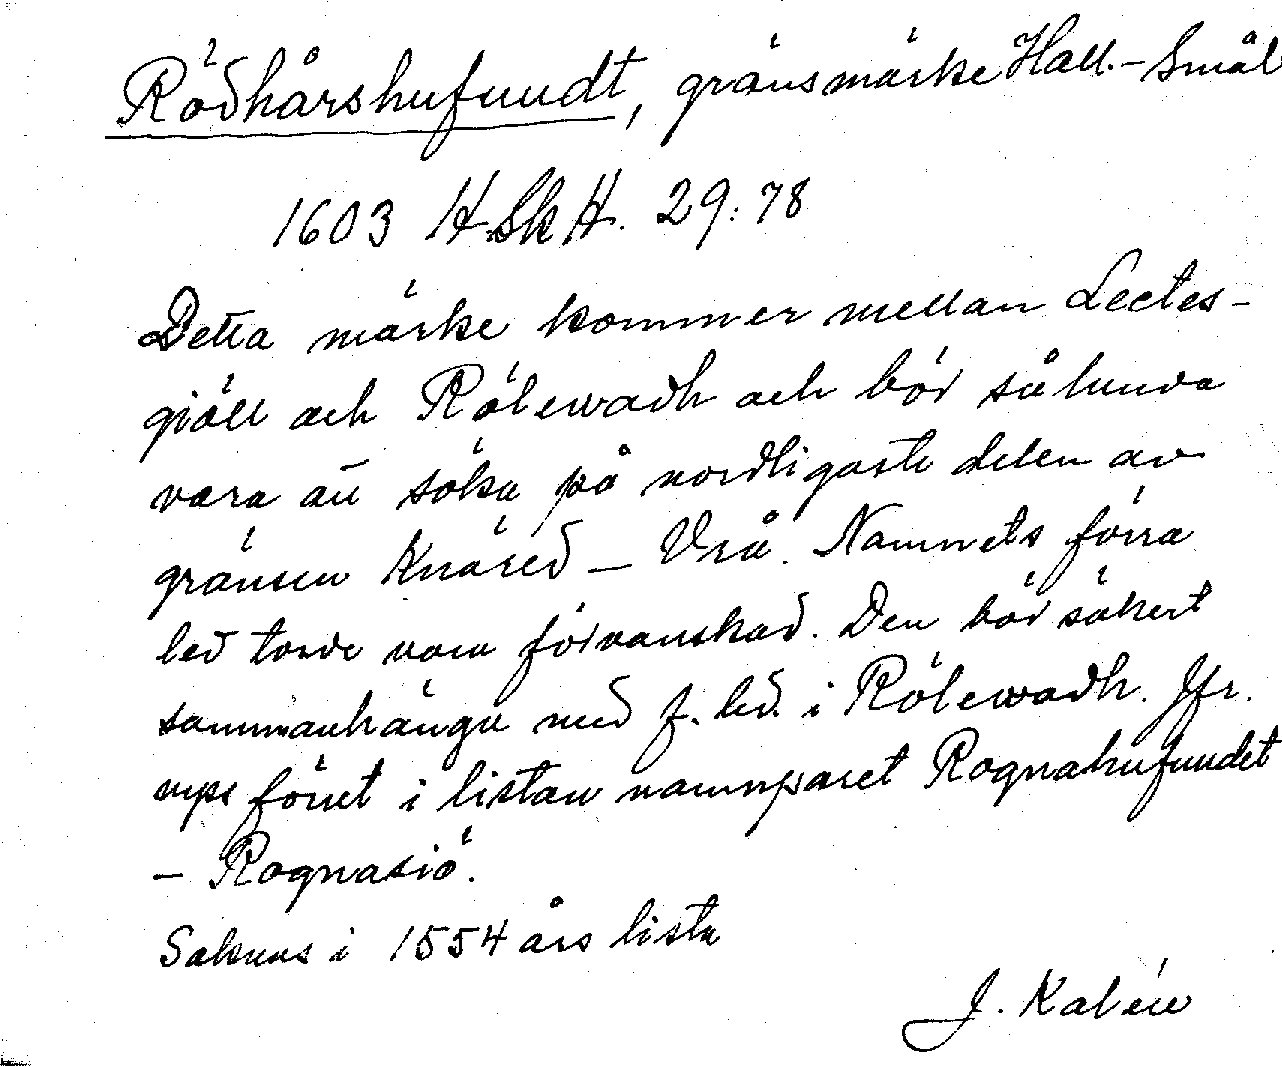 Rödhårshufuudt, gränsmärke Hall.-Smål
1603 H.Sk H. 29:78
Detta märke kommer mellan Lectes-
giöll och Rölewadh och bör sålunda
vara att söka på nordligaste delen av
gränsen Knäred - Vrå. Namnets förra
led torde vara förvanskad. Den bör säkert
sammanhänga med f. led. i Rölewadh. Jfr.
nyss förut i listan namnparet Rognahufuudet
- Rognasiö.
Saknas i 1554 års lista
J. Kalén